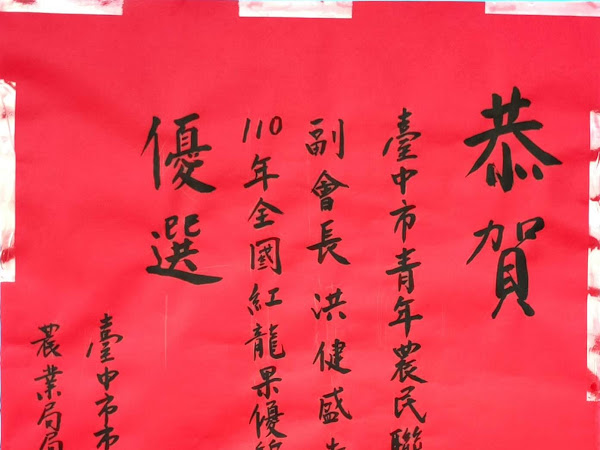 恭賀
臺中市青年農民聯
副會長洪健盛
110年全國紅龍果優
優選
臺中市市
農業局局